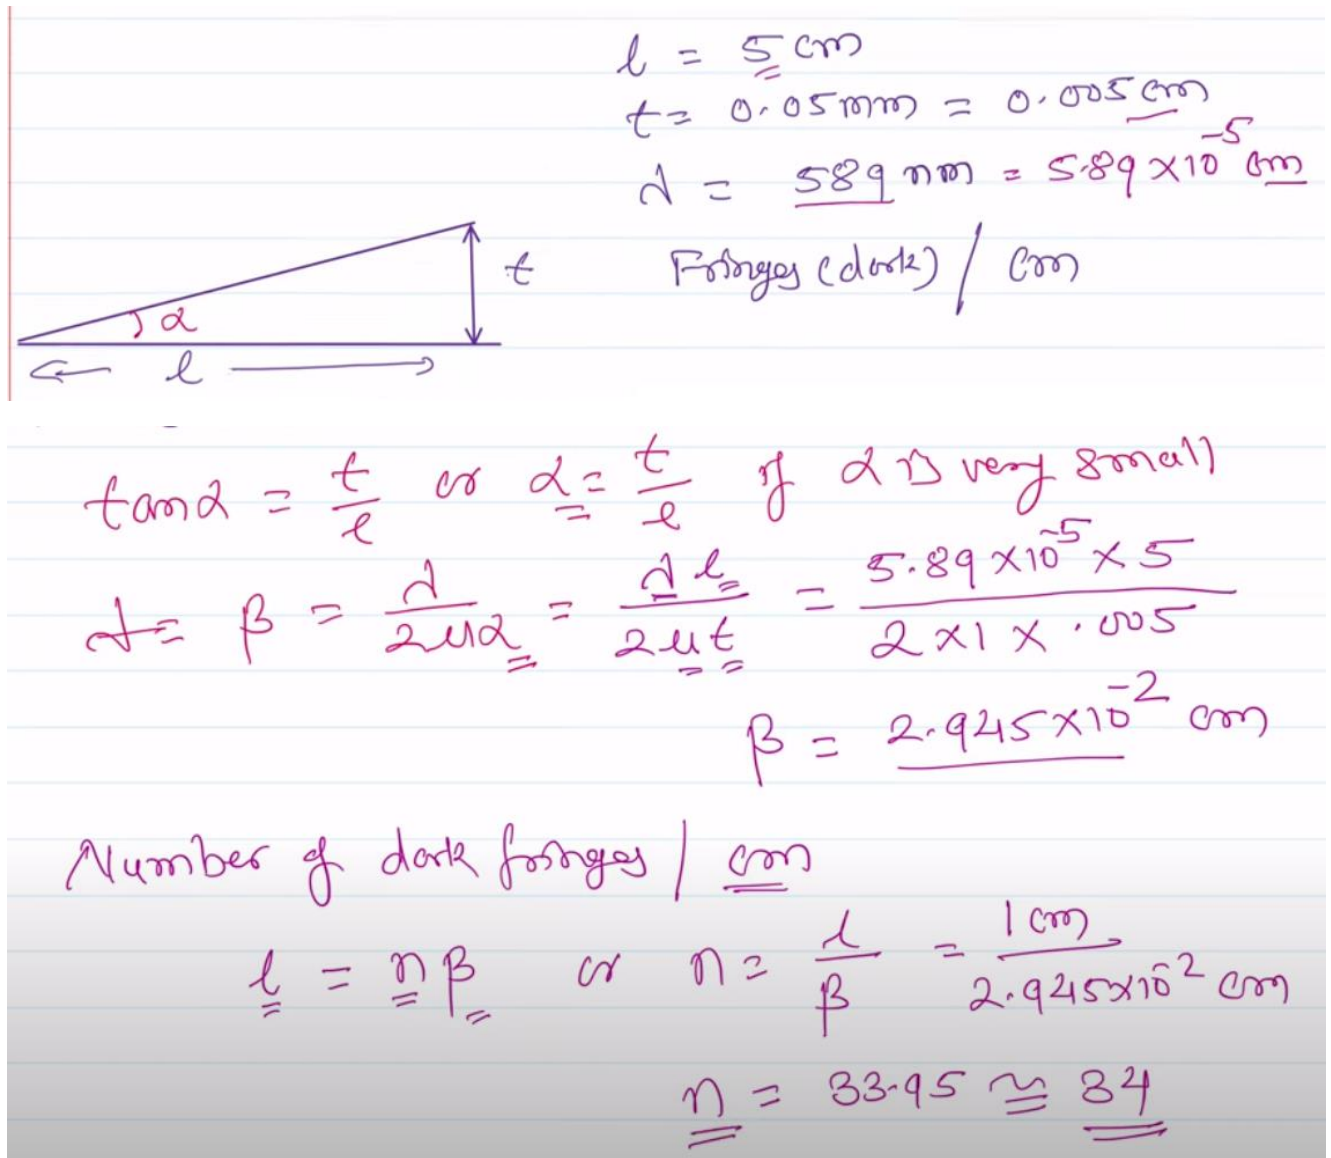 l = 5 cm
t = 0.05 mm = 0.005 cm
λ = 589 nm = 5.89 × 10⁻⁵ cm
Fringes (dark) / cm
t
α
l
tanα = t/l or α = t/l if α is very small
β = λ/2μα = λl/2μt = 5.89 × 10⁻⁵ × 5 / 2 × 1 × .005
β = 2.945 × 10⁻² cm
Number of dark fringes / cm
l = nβ or n = l/β = 1 cm / 2.945 × 10⁻² cm
n = 33.95 ≅ 34